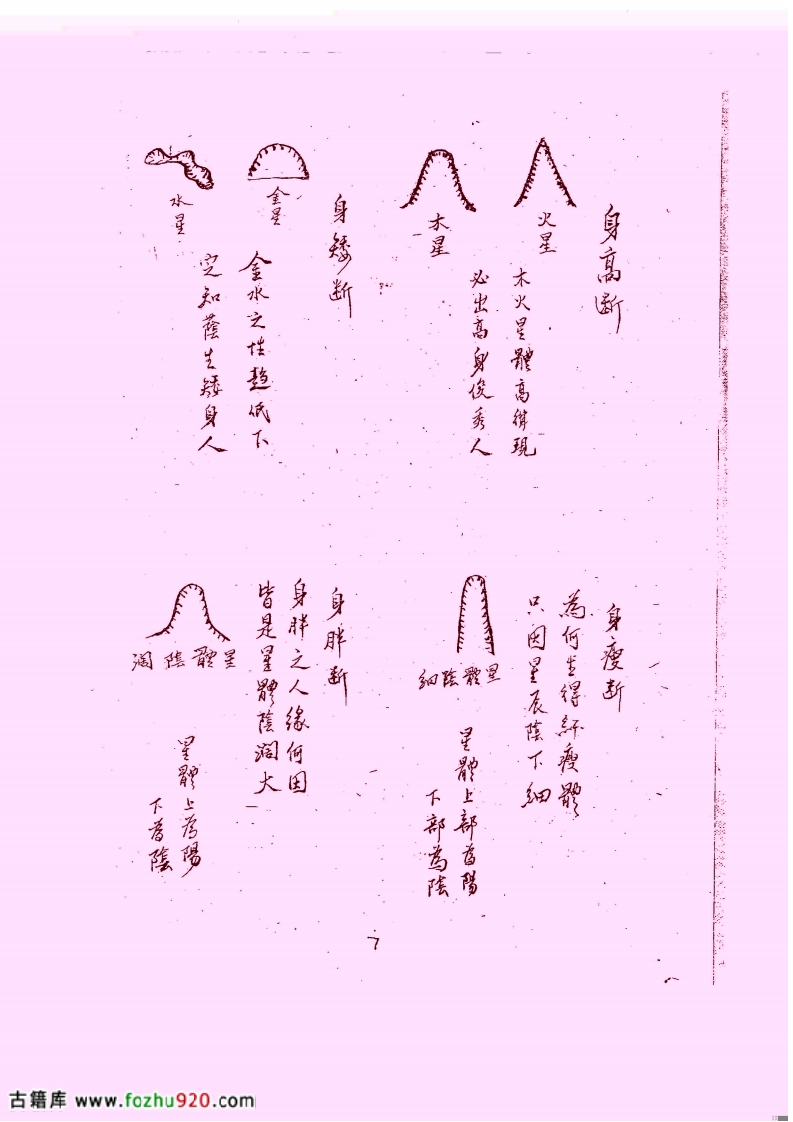 身高断
火星
木星
木火星體高得現
必出高身俊秀人
身矮断
金星
水星
金水之性趋低下
定知蔭生矮身人
身瘦断
為何生得纤瘦體
只因星辰陰下細
星體陰細
星體上部為陽
下部為陰
身胖断
身胖之人緣何因
皆是星體陰濶大
星體陰濶
星體上為陽
下為陰
7
古籍库 www.fozhu920.com